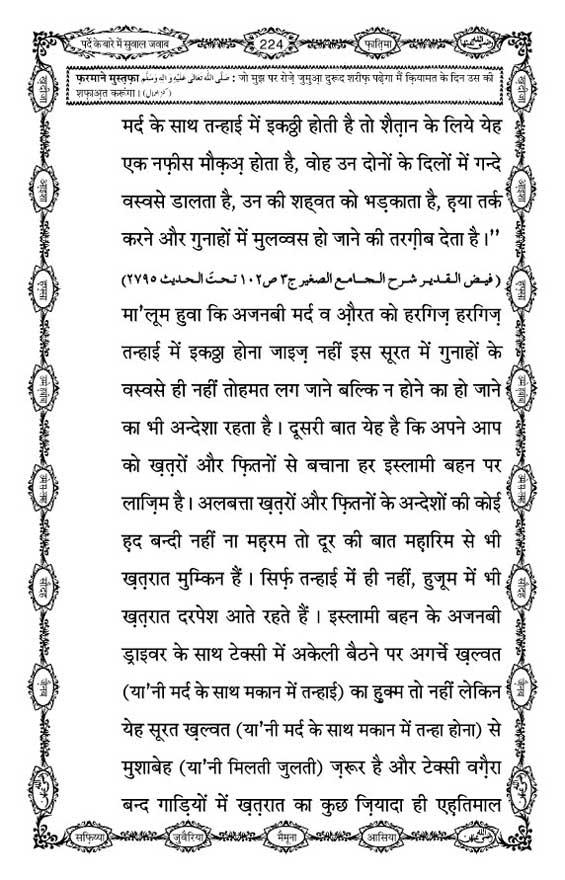 पर्दे के बारे में सुवाल जवाब
224
फ़ातिमा
फ़रमाने मुस्त़फ़ा صَلَّى اللهُ تَعَالٰى عَلَيْهِ وَاٰلِهٖ وَسَلَّم : जो मुझ पर रोज़े जुमुआ़ दुरूद शरीफ़ पढ़ेगा मैं क़ियामत के दिन उस की
शफ़ाअ़त करूंगा।
मर्द के साथ तन्हाई में इकठ्ठी होती है तो शैत़ान के लिये येह
एक नफ़ीस मौक़अ़ होता है, वोह उन दोनों के दिलों में गन्दे
वस्वसे डालता है, उन की शह्वत को भड़काता है, ह़या तर्क
करने और गुनाहों में मुलव्वस हो जाने की तरग़ीब देता है।''
( فيض القدير شرح الجامع الصغير ج٣ ص١٠٢ تحت الحديث ٢٧٩٥)
मा'लूम हुवा कि अजनबी मर्द व औ़रत को हरगिज़ हरगिज़
तन्हाई में इकठ्ठा होना जाइज़ नहीं इस सूरत में गुनाहों के
वस्वसे ही नहीं तोहमत लग जाने बल्कि न होने का हो जाने
का भी अन्देशा रहता है। दूसरी बात येह है कि अपने आप
को ख़त़रों और फ़ितनों से बचाना हर इस्लामी बहन पर
लाज़िम है। अलबत्ता ख़त़रों और फ़ितनों के अन्देशों की कोई
ह़द बन्दी नहीं ना महरम तो दूर की बात महारिम से भी
ख़त़रात मुम्किन हैं। सिर्फ़ तन्हाई में ही नहीं, हुजूम में भी
ख़त़रात दरपेश आते रहते हैं। इस्लामी बहन के अजनबी
ड्राइवर के साथ टेक्सी में अकेली बैठने पर अगर्चे ख़ल्वत
(या'नी मर्द के साथ मकान में तन्हाई) का हुक्म तो नहीं लेकिन
येह सूरत ख़ल्वत (या'नी मर्द के साथ मकान में तन्हा होना) से
मुशाबेह (या'नी मिलती जुलती) ज़रूर है और टेक्सी वग़ैरा
बन्द गाड़ियों में ख़त़रात का कुछ ज़ियादा ही एह़तिमाल
सफ़िय्या
जुवैरिया
मैमूना
आसिया